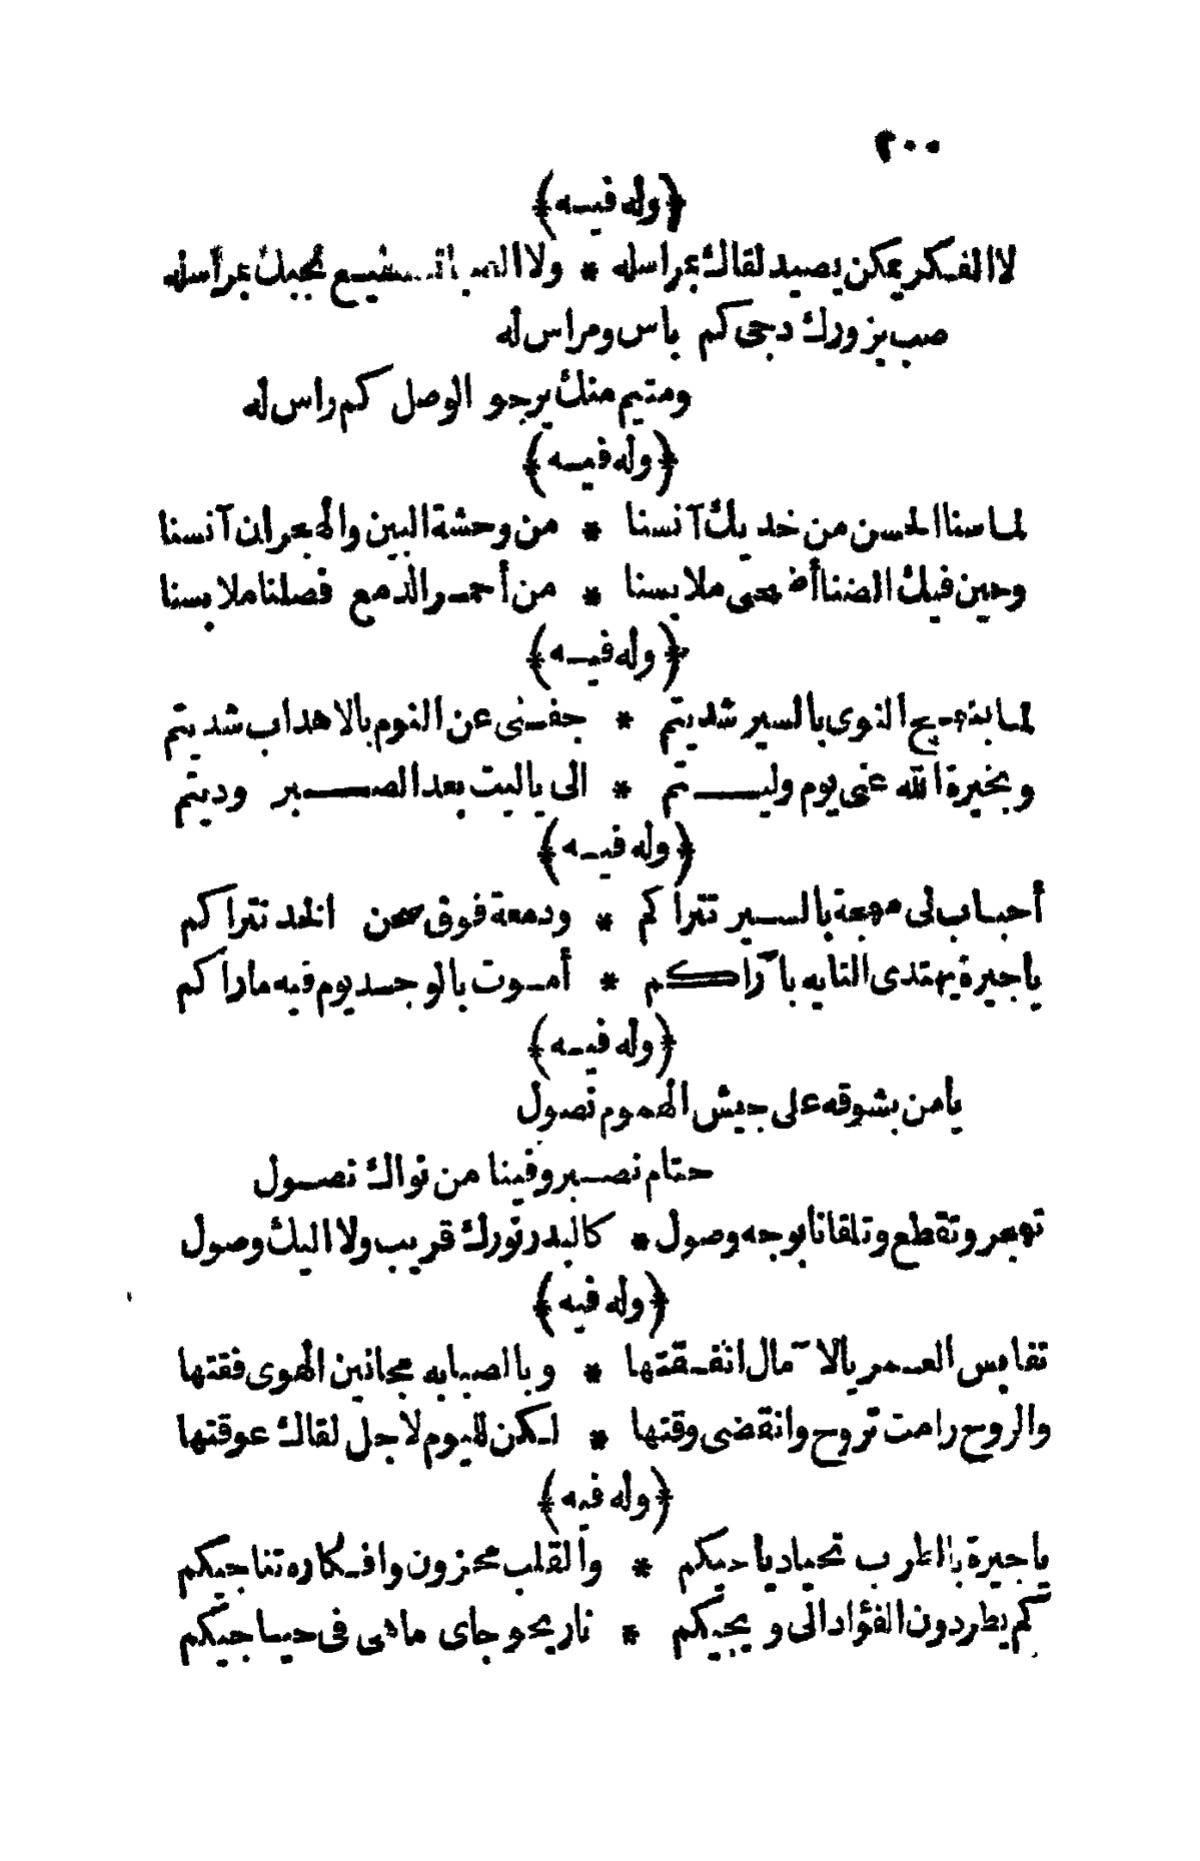 ٢٠٠
﴿وله فيه﴾
لا الفكر يمكن يصيد لقاك بمراسله * ولا تشفع بجيبك بمراسله
صب يزورك دجى كم باس ومراس له
ومتيم منك يرجو الوصل كم راس له
﴿وله فيه﴾
لما سنا الحسن من خديك آنسنا * من وحشة البين والهجران آنسنا
وحين فيك الضنا أضحى ملابسنا * من أحمر الدمع فصلنا ملابسنا
﴿وله فيه﴾
لما بنهج النوى بالسير شديتم * جفنى عن النوم بالاهداب شديتم
وبخيرة الله عنى يوم وليتم * الى ياليت بعد الصبر وديتم
﴿وله فيه﴾
أحباب لى مهجة بالسير تتراكم * ودمعة فوق صحن الخد تتراكم
ياجيرة يهتدى التايه بآراكم * أموت بالوجد يوم فيه ماراكم
﴿وله فيه﴾
يامن بشوقه على جيش الهموم نصول
حتام نصبر وفينا من نواك نصول
تهجر وتقطع وتلقانا بوجه وصول * كالبدر نورك قريب ولا اليك وصول
﴿وله فيه﴾
نفايس العمر بالآمال انفقتها * وبالصبابه مجانين الهوى فقتها
والروح رامت تروح وانقضى وقتها * لكن لليوم لاجل لقاك عوقتها
﴿وله فيه﴾
ياجيرة بالطرب تحياد ياحيكم * والقلب محزون وافكاره تناجيكم
كم يطردون الفؤاد الى ويجيكم * نار يحو جاى ماهى فى حساجيكم